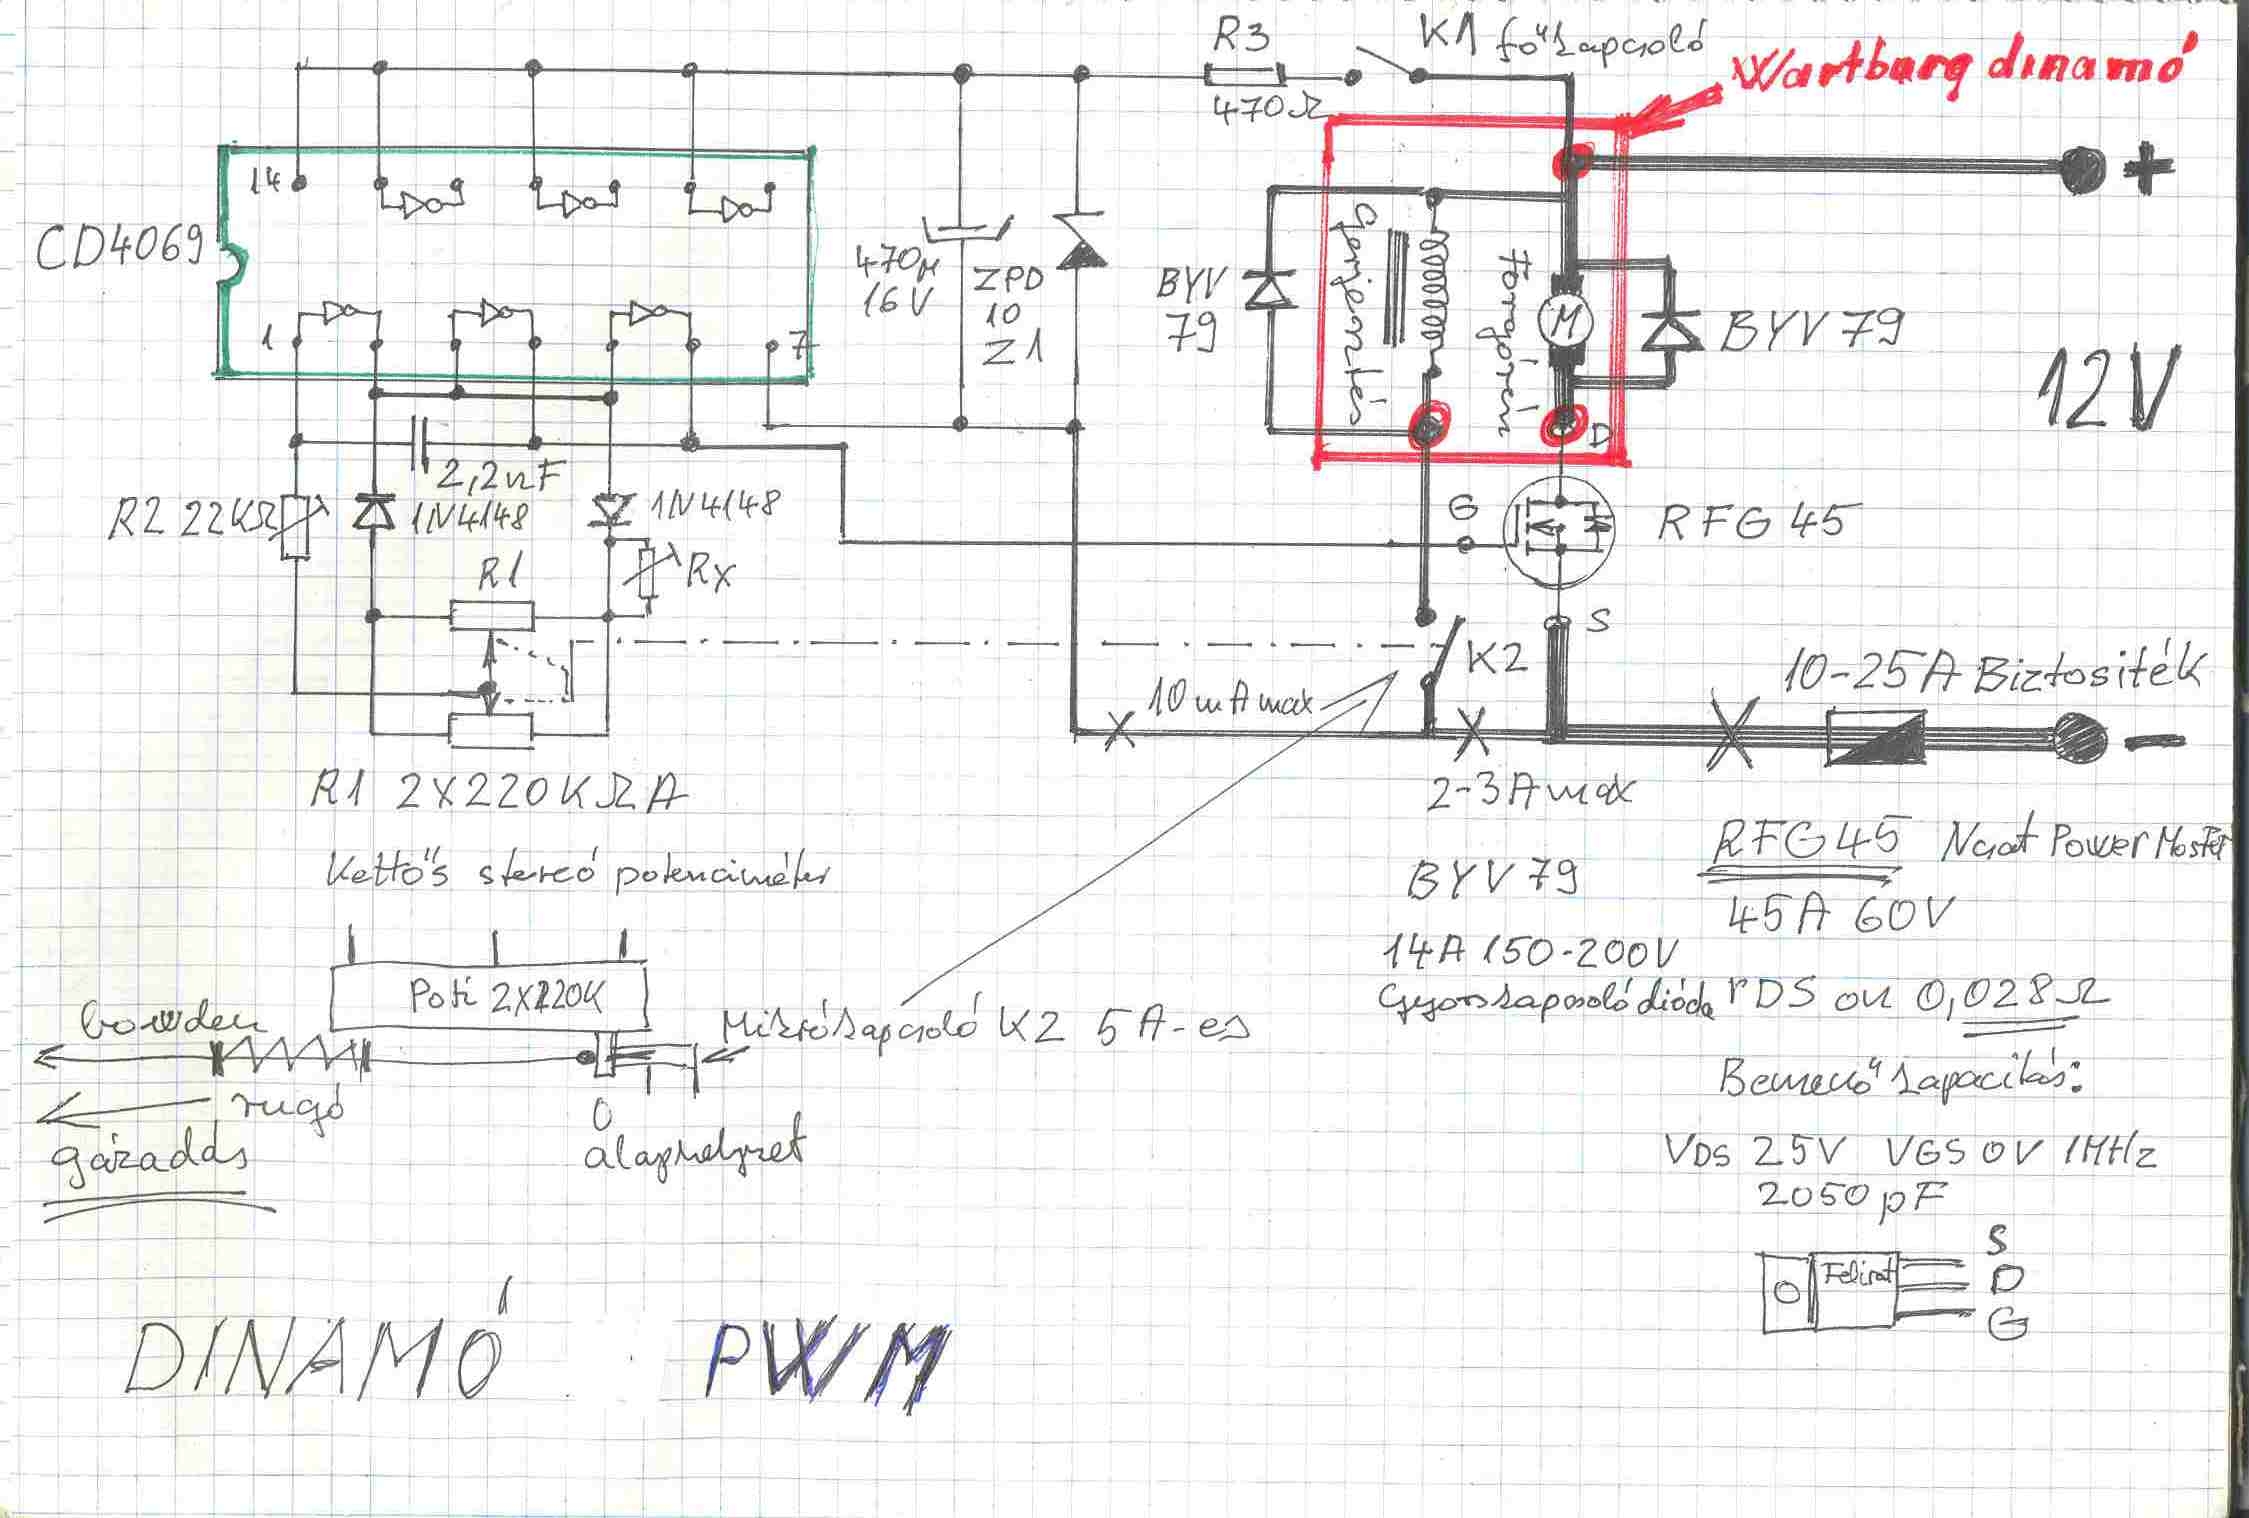 R3
K1 főkapcsoló
Wartburg dinamó
470Ω
+
14
CD4069
1
7
470µ
16V
ZPD
10
Z1
BYV
79
Gerjesztés
Forgórész
M
BYV 79
12V
D
2,2nF
R2 22KΩ
1N4148
1N4148
G
RFG 45
R1
Rx
S
K2
10mA max
10-25A Biztositék
−
2-3A max
R1 2X220KΩA
Kettős stereó potenciméter
RFG45 Ncsat Power Mosfet
45A 60V
BYV 79
14A 150-200V
Gyorskapcsoló dióda
rDS on 0,028Ω
Poti 2X220K
bowden
Mikrókapcsoló K2 5A-es
rugó
gázadás
0
alaphelyzet
Bemenő kapacitás:
VDS 25V VGS 0V 1MHz
2050pF
Felirat
S
D
G
DINAMÓ PWM